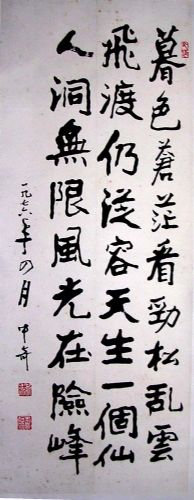 暮色蒼茫看勁松乱雲
飛渡仍從容天生一個仙
人洞無限風光在險峰
一九七六年于四月